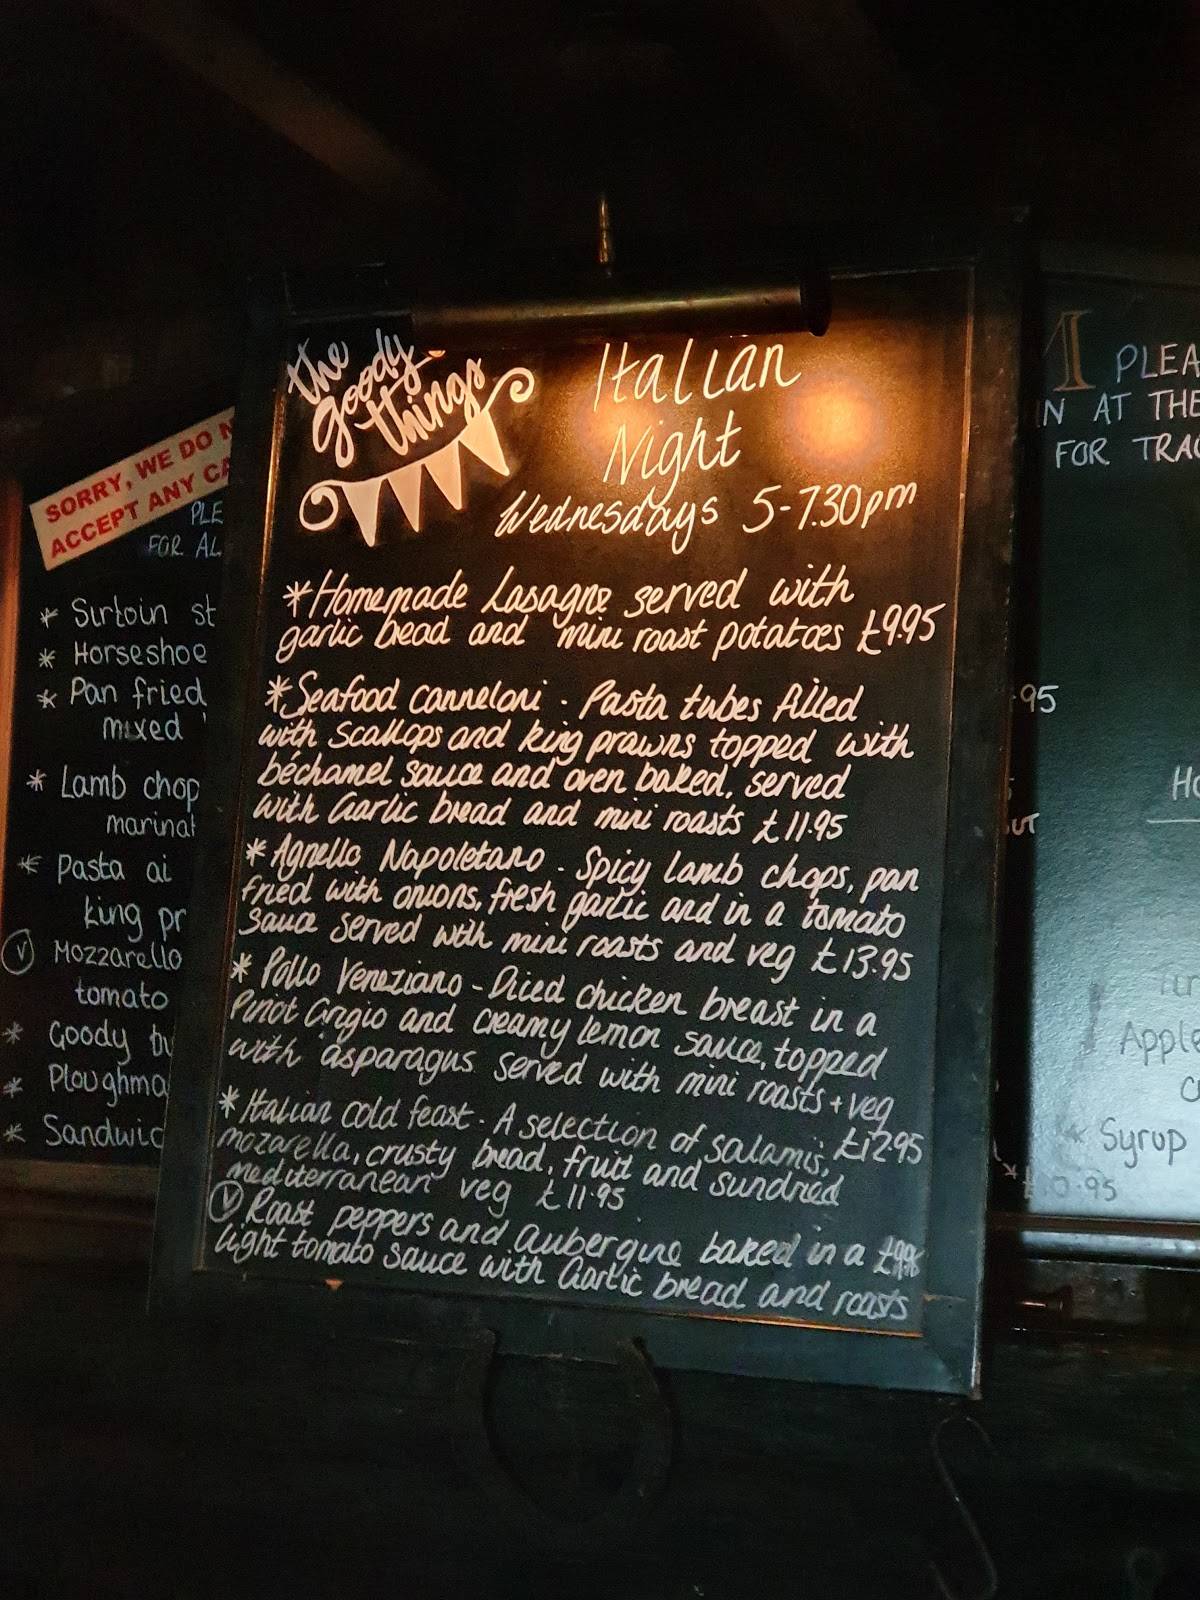 the
goody
things
Italian
Night
Wednesdays 5-7.30pm
*Homemade Lasagne served with
garlic bread and mini roast potatoes £9.95
*Seafood canneloni - Pasta tubes filled
with scallops and king prawns topped with
béchamel sauce and oven baked, served
with Garlic bread and mini roasts £11.95
*Agnello Napoletano - Spicy lamb chops, pan
fried with onions, fresh garlic and in a tomato
sauce served with mini roasts and veg £13.95
* Pollo Veneziano - Diced chicken breast in a
Pinot Grigio and creamy lemon sauce, topped
with asparagus served with mini roasts + veg
£12.95
*Italian cold feast - A selection of salamis,
mozarella, crusty bread, fruit and sundried
mediterranean veg £11.95
(V) Roast peppers and aubergine baked in a £9.95
light tomato sauce with Garlic bread and roasts
SORRY, WE DO N
ACCEPT ANY CA
PLE
FOR AL
* Sirloin st
* Horseshoe
* Pan fried
mixed
* Lamb chop
marinat
* Pasta ai
king pr
(V) Mozzarella
tomato
* Goody bu
* Ploughma
* Sandwic
PLEA
IN AT THE
FOR TRAC
.95
Ho
Apple
* Syrup